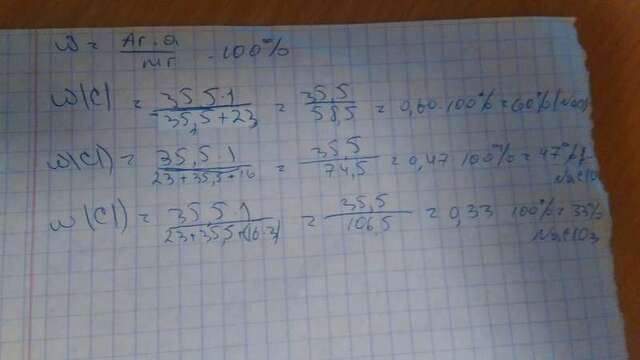 w = Ar·a / Mr · 100%
w(Cl) = 35,5·1 / 35,5+23 = 35,5 / 58,5 = 0,60·100% = 60%
w(Cl) = 35,5·1 / 23+35,5+16 = 35,5 / 74,5 = 0,47 100% = 47%
NaClO
w(Cl) = 35,5·1 / 23+35,5+(16·3) = 35,5 / 106,5 = 0,33 100% = 33%
NaClO3